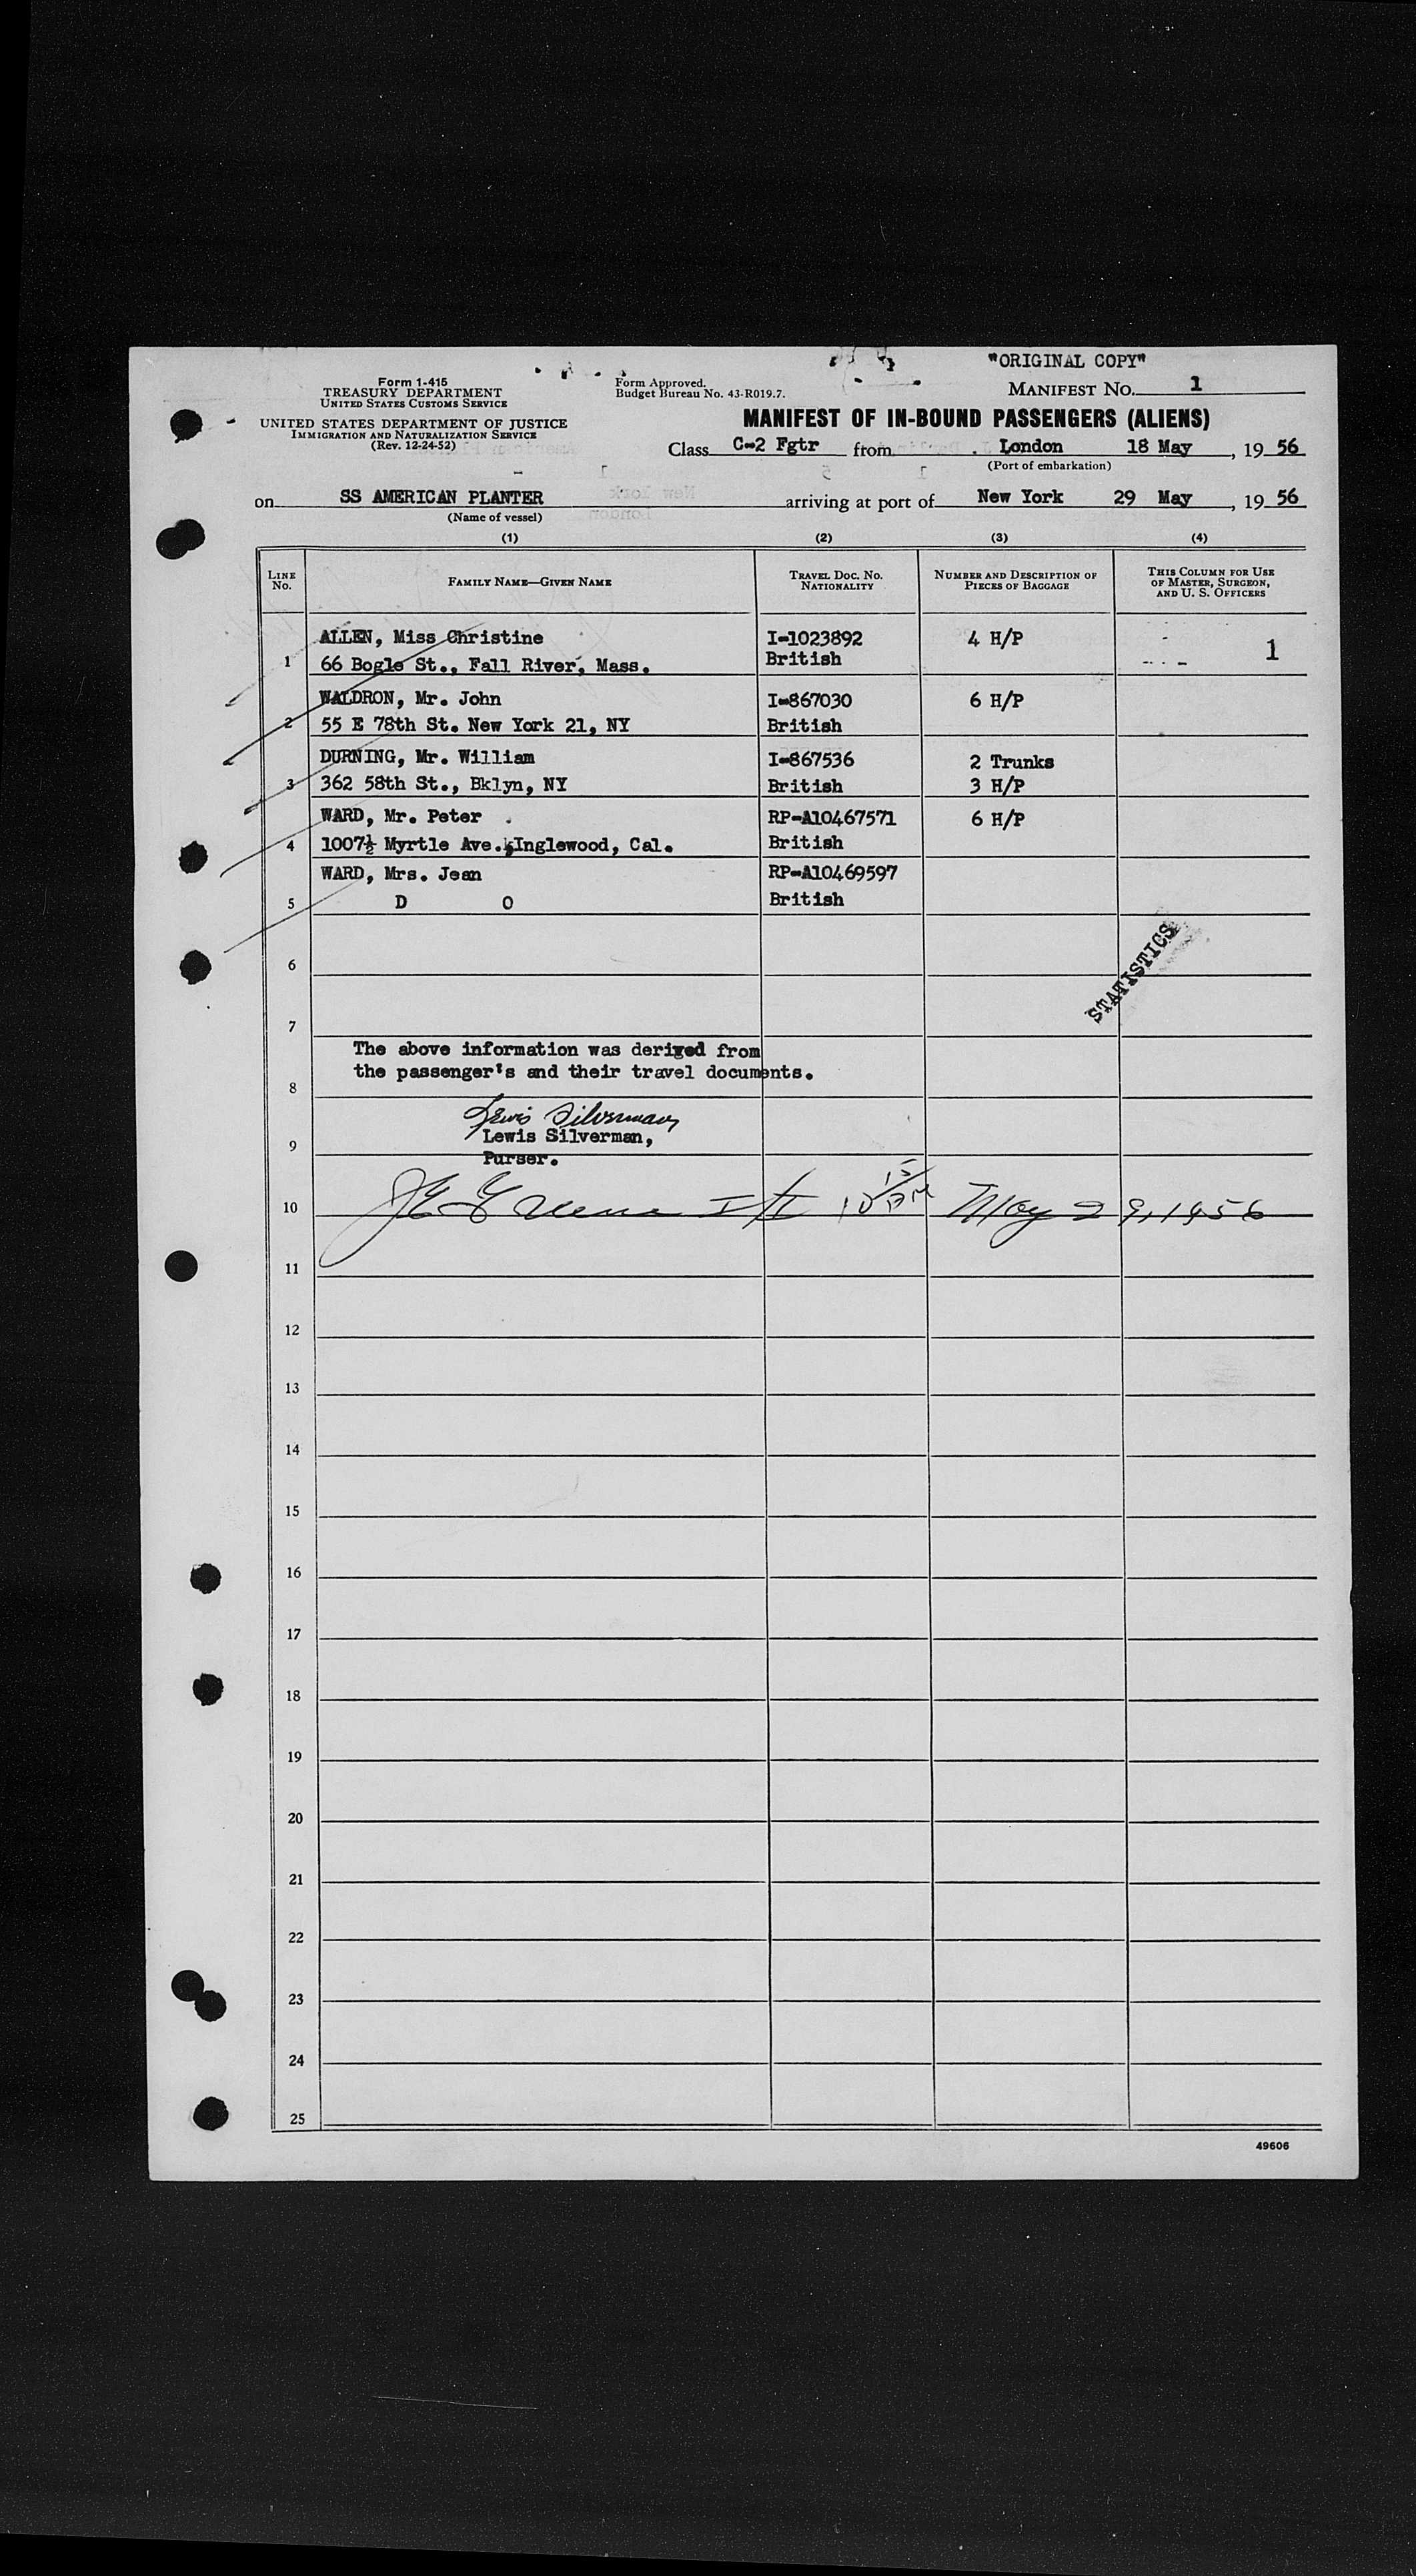 "ORIGINAL COPY"
Form 1-415
TREASURY DEPARTMENT
UNITED STATES CUSTOMS SERVICE
UNITED STATES DEPARTMENT OF JUSTICE
IMMIGRATION AND NATURALIZATION SERVICE
(Rev. 12-24-52)
Form Approved.
Budget Bureau No. 43-R019.7.
MANIFEST NO. 1
MANIFEST OF IN-BOUND PASSENGERS (ALIENS)
Class C-2 Fgtr from London 18 May, 19 56
(Port of embarkation)
on SS AMERICAN PLANTER arriving at port of New York 29 May, 19 56
(Name of vessel)
(1) (2) (3) (4)
LINE NO. FAMILY NAME—GIVEN NAME TRAVEL DOC. NO. NATIONALITY NUMBER AND DESCRIPTION OF PIECES OF BAGGAGE THIS COLUMN FOR USE OF MASTER, SURGEON, AND U. S. OFFICERS
ALLEN, Miss Christine I-1023892 4 H/P
1 66 Bogle St., Fall River, Mass. British 1
WALDRON, Mr. John I-867030 6 H/P
2 55 E 78th St. New York 21, NY British
DURNING, Mr. William I-867536 2 Trunks
3 362 58th St., Bklyn, NY British 3 H/P
WARD, Mr. Peter RP-A10467571 6 H/P
4 1007½ Myrtle Ave., Inglewood, Cal. British
WARD, Mrs. Jean RP-A10469597
5 D O British
STATISTICS
6
7
The above information was derived from
the passenger's and their travel documents.
8
Lewis Silverman
Lewis Silverman,
9
Purser.
10 May 29, 1956
11
12
13
14
15
16
17
18
19
20
21
22
23
24
25
49606